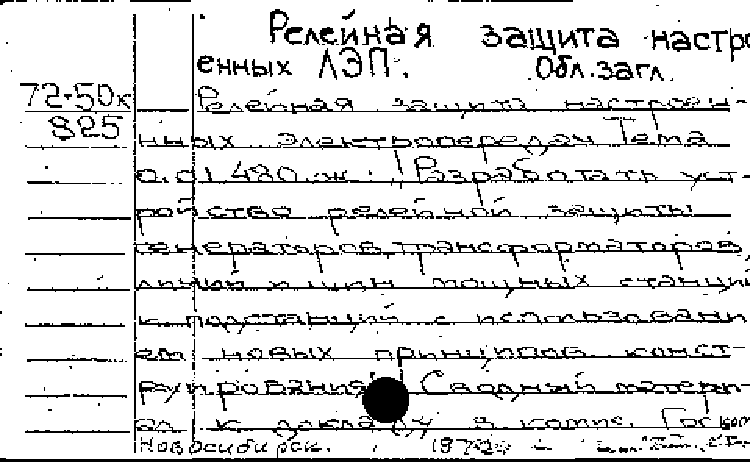 Релейная защита настро
енных ЛЭП. Обл.загл.
72-50к Релейная защита настроен-
825 нных электропередач Тема
0.01.480.ж. Разработать уст-
ройство релейной защиты
генераторов, трансформаторов,
линий и шин мощных станций
и подстанций с использовани
ем новых принципов конст-
руирования. Сводный матери-
ал к докладу в комис. Гос ком
Новосибирск. 1972